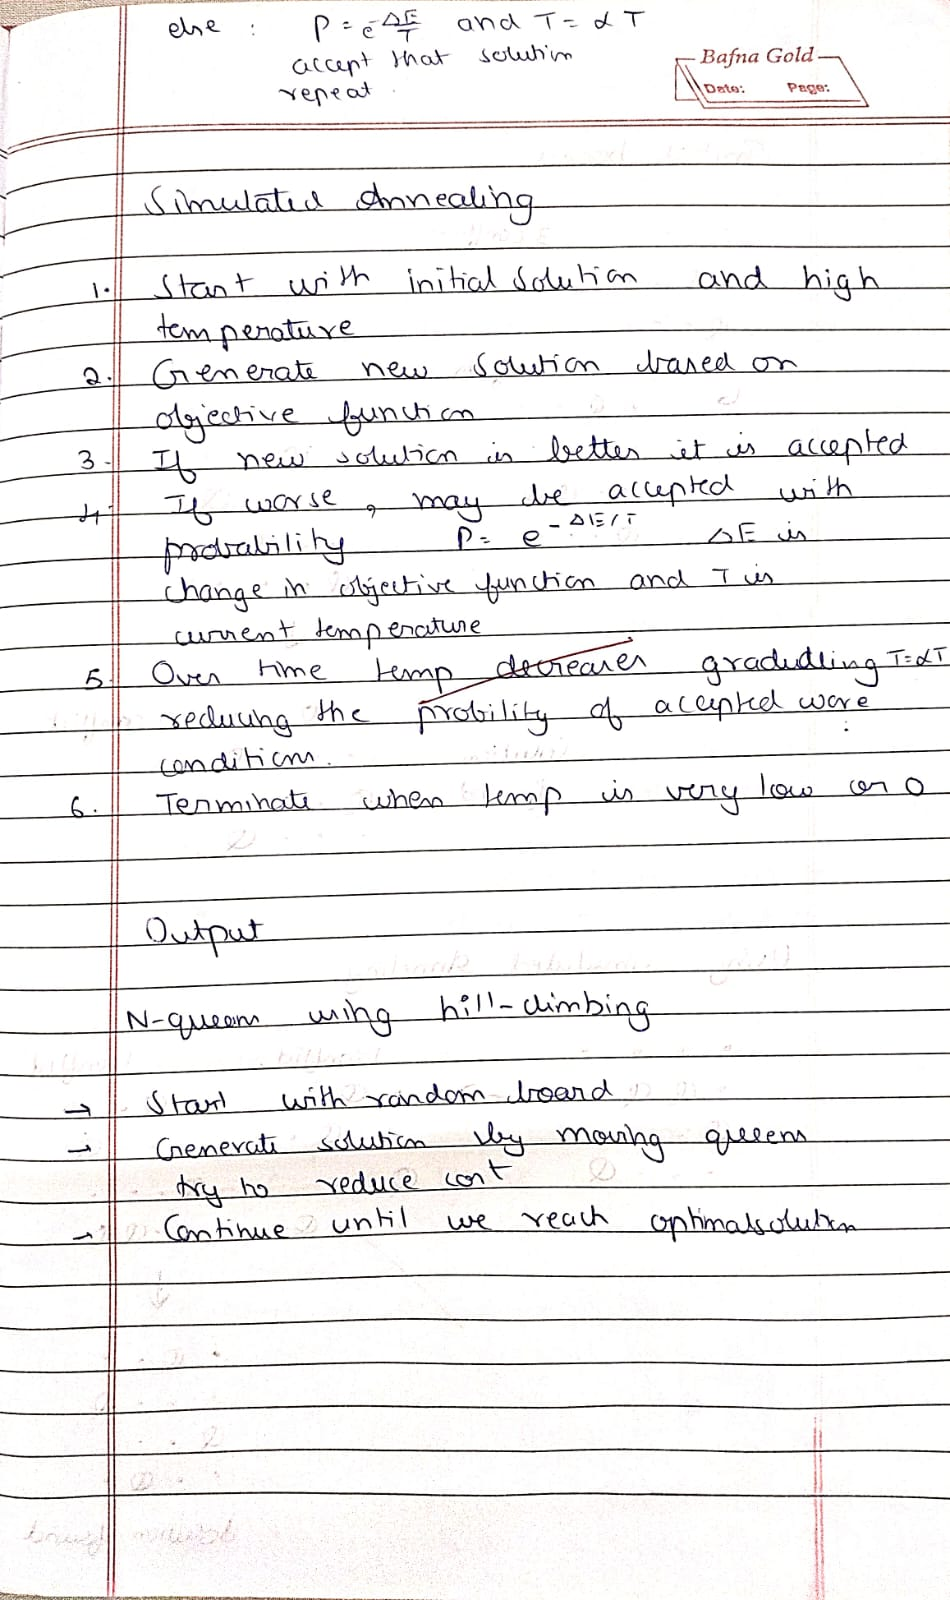 else : P = e^-ΔE/T and T = αT
accept that solution
repeat.
Bafna Gold
Date: Page:
Simulated Annealing
1. Start with initial solution and high
temperature
2. Generate new solution based on
objective function
3. If new solution is better it is accepted
4. If worse, may be accepted with
probability P = e^-ΔE/T ΔE is
change in objective function and T is
current temperature
5. Over time temp decreases gradudling T=αT
reducing the probility of accepted wore
condition.
6. Terminate when temp is very low or 0
Output
N-queens using hill-climbing
→ Start with random board
→ Generate solution by moving queens
try to reduce cost
→ Continue until we reach optimal solution